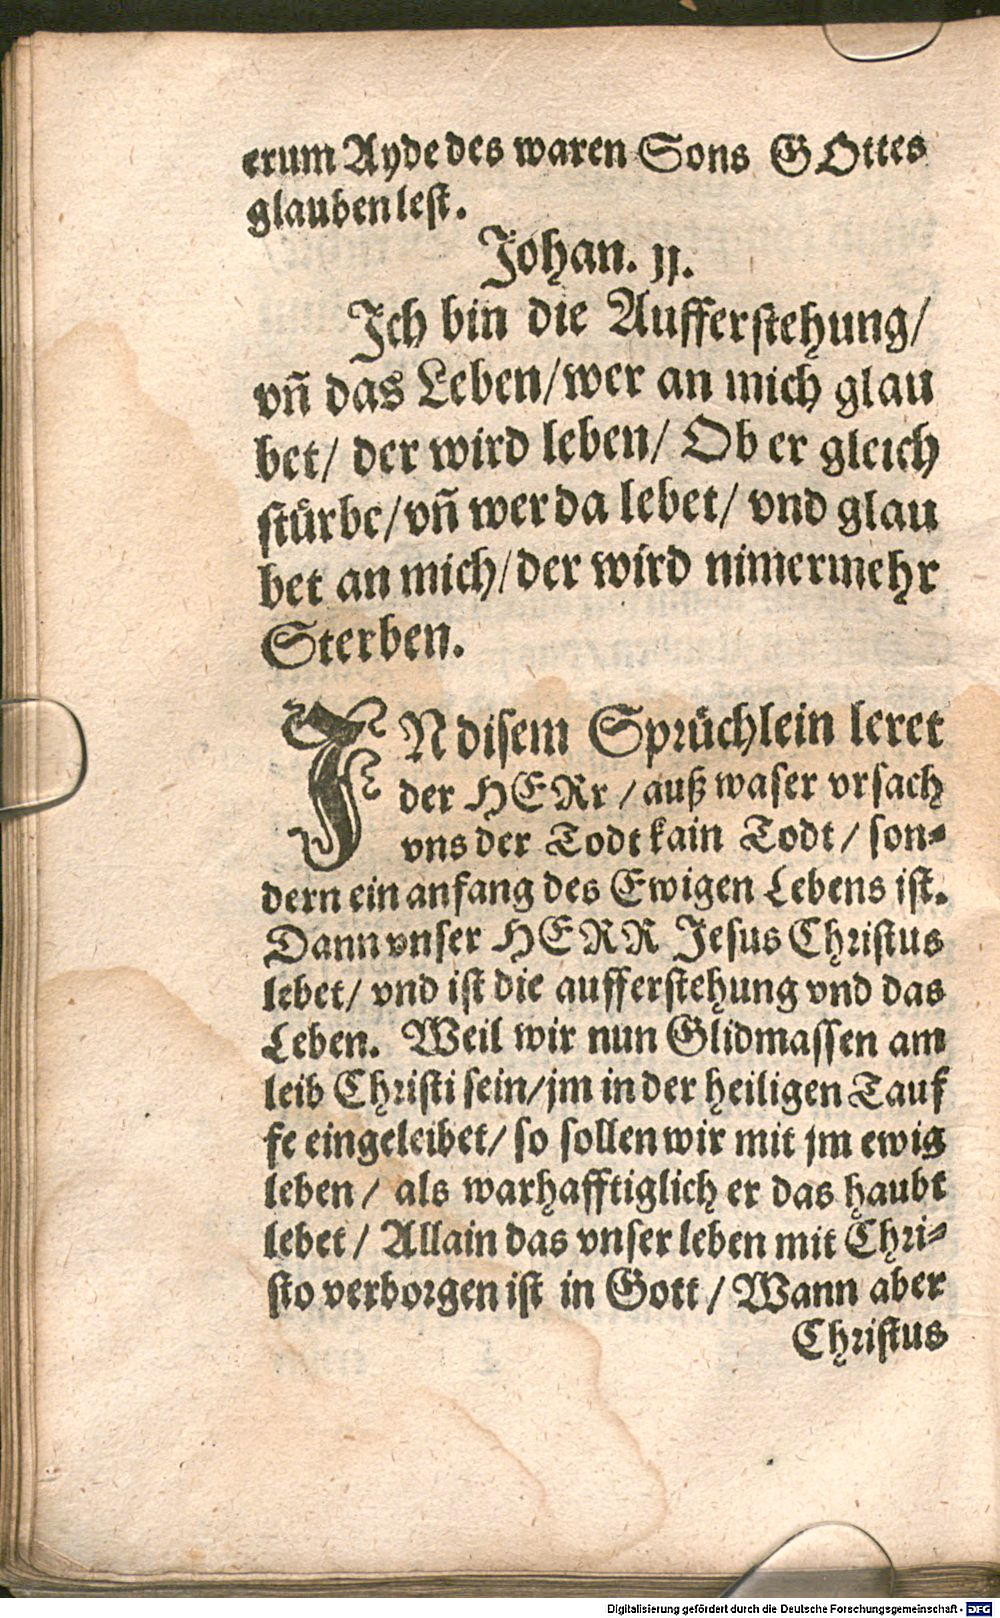 erum Ayde des waren Sons GOttes
glauben lest.
Johan. 11.
Ich bin die Aufferstehung/
vñ das Leben/wer an mich glau
bet/ der wird leben/ Ob er gleich
stürbe/vñ wer da lebet/ vnd glau
bet an mich/der wird nimermehr
Sterben.
IN disem Sprüchlein leret
der HERr / auß waser vrsach
vns der Todt kain Todt / son-
dern ein anfang des Ewigen Lebens ist.
Dann vnser HERR Jesus Christus
lebet/ vnd ist die aufferstehung vnd das
Leben. Weil wir nun Glidmassen am
leib Christi sein/jm in der heiligen Tauf
fe eingeleibet/ so sollen wir mit jm ewig
leben / als warhafftiglich er das haubt
lebet / Allain das vnser leben mit Chri-
sto verborgen ist in Gott / Wann aber
Christus
Digitalisierung gefördert durch die Deutsche Forschungsgemeinschaft - DFG